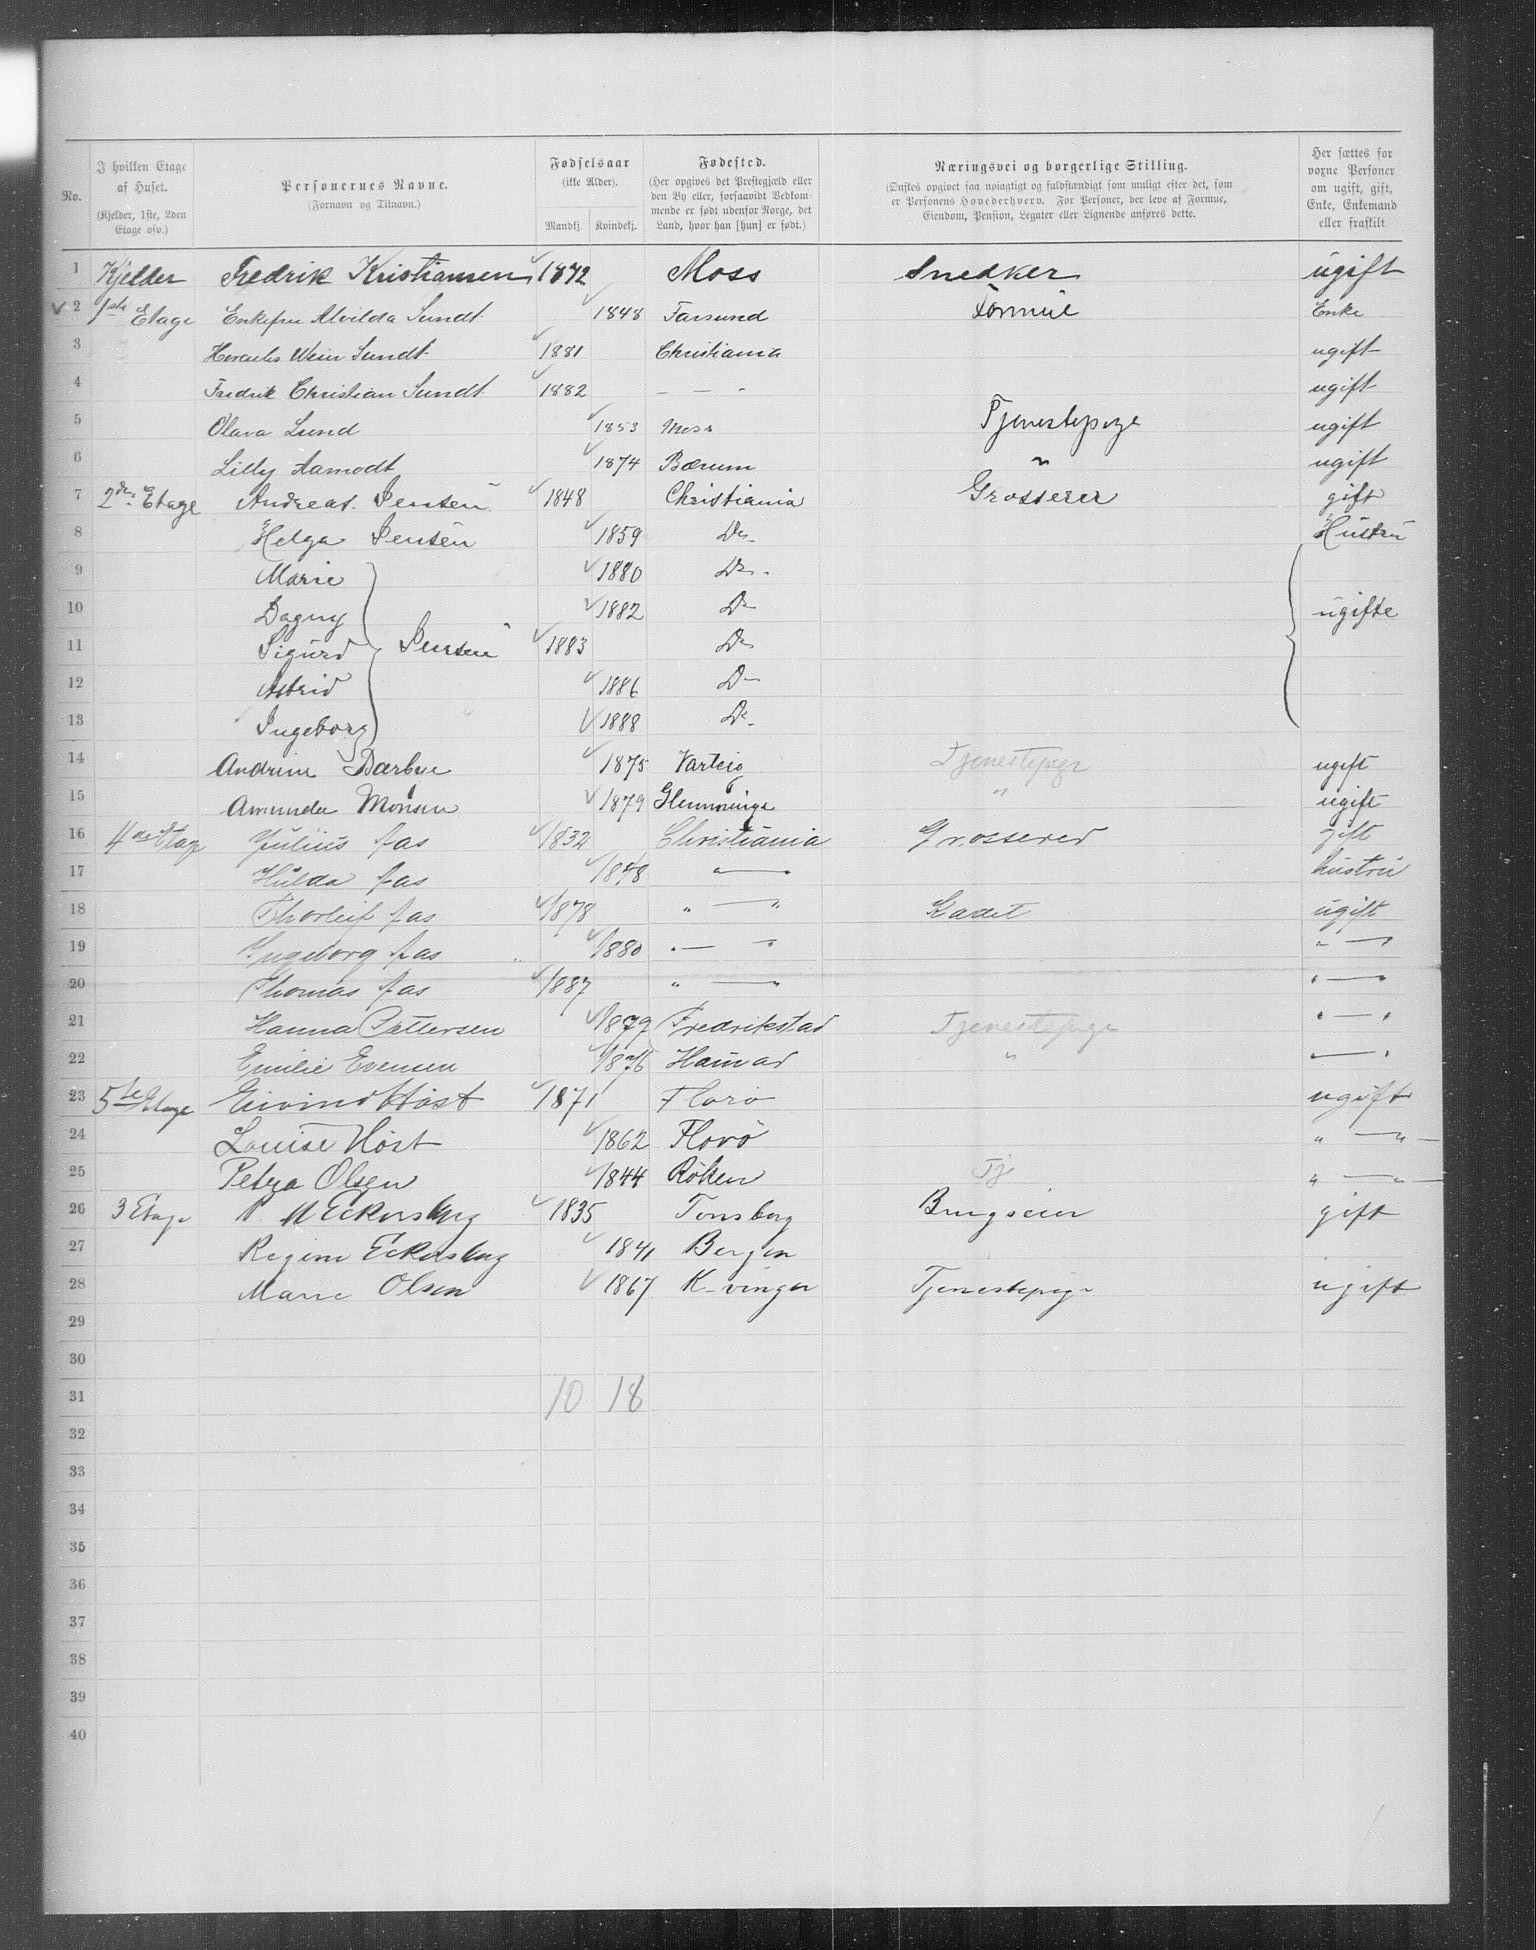 No.
I hvilken Etage af Huset.
(Kjelder, 1ste, 2den Etage osv.)
Personernes Navne.
(Fornavn og Tilnavn.)
Fødselsaar
(ikke Alder).
Mandkj. Kvindekj.
Fødested.
(Her opgives det Prestegjæld eller den By eller, forsaavidt Vedkommende er født udenfor Norge, det Land, hvor han [hun] er født.)
Næringsvei og borgerlige Stilling.
(Ønskes opgivet saa nøiagtigt og fuldstændigt som muligt efter det, som er Personens Hovederhverv. For Personer, der leve af Formue, Eiendom, Pension, Legater eller Lignende anføres dette.
Her sættes for voxne Personer om ugift, gift, Enke, Enkemand eller fraskilt
1 Kjelder Fredrik Kristiansen 1872 Moss Snedker ugift
2 1ste Etage Enkefru Alvilda Sundt 1848 Farsund Formue Enke
3 Hercules Weier Sundt 1881 Christiania ugift
4 Fredrik Christian Sundt 1882 — — - ugift
5 Olava Lund 1853 Moss Tjenestepige ugift
6 Lilly Aamodt 1874 Bærum " ugift
7 2den Etage Andreas Jensen 1848 Christiania Grosserer gift
8 Helga Jensen 1859 Do Hustru
9 Marie 1880 Do
10 Dagny 1882 Do ugifte
11 Sigurd Jensen 1883 Do
12 Astrid 1886 Do
13 Ingeborg 1888 Do
14 Andrine Bærbye 1875 Varteig Tjenestepige ugift
15 Amunda Monsen 1879 Glemminge " ugift
16 4de Etage Julius Aas 1832 Christiania Grosserer gift
17 Hulda Aas 1848 " — " hustru
18 Thorleif Aas 1878 " — " Kadet ugift
19 Ingeborg Aas 1880 " — " " — "
20 Thomas Aas 1887 " — " " — "
21 Hanna Pettersen 1879 Fredrikstad Tjenestepige " — "
22 Emilie Evensen 1876 Hamar " " — "
23 5te Etage Eivind Høst 1871 Florø ugift
24 Louise Høst 1862 Florø " — " —
25 Petra Olsen 1844 Røken Tj " — " —
26 3 Etage M Eckersberg 1835 Tønsberg Brugseier gift
27 Regine Eckersberg 1841 Bergen
28 Marie Olsen 1867 K-vinger Tjenestepige ugift
29
30
31 10 18
32
33
34
35
36
37
38
39
40